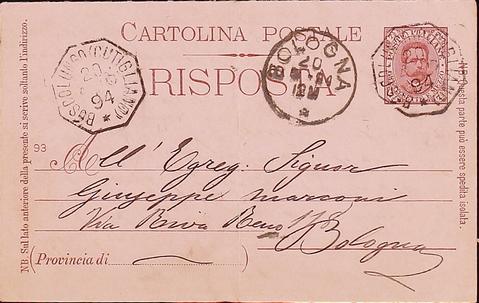 CARTOLINA POSTALE
RISPOSTA
BOSCOLUNGO (CUTIGLIANO)
20
94
BOLOGNA
20
94
93
All' Egreg. Signor
Giuseppe Marconi
Via Riva Reno 118
Bologna
(Provincia di
NB Sul lato anteriore della presente si scrive soltanto l'indirizzo.
NB Questa parte può essere spedita isolata.